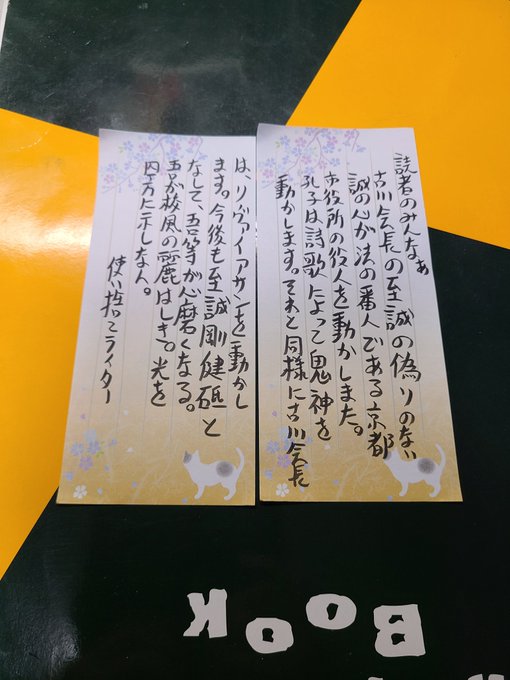 読者のみんなぁ
古川会長の至誠の偽りのない
誠の心が法の番人である京都
市役所の役人を動かしました。
孔子は詩歌によって鬼神を
動かします。それと同様に古川会長
は、リヴァイアサンを動かし
ます。今後も至誠剛健砥と
なして、吾等が心磨くなる。
吾が校風の麗はしき。光を
四方に示しなん。
使い捨てライター
BOOK